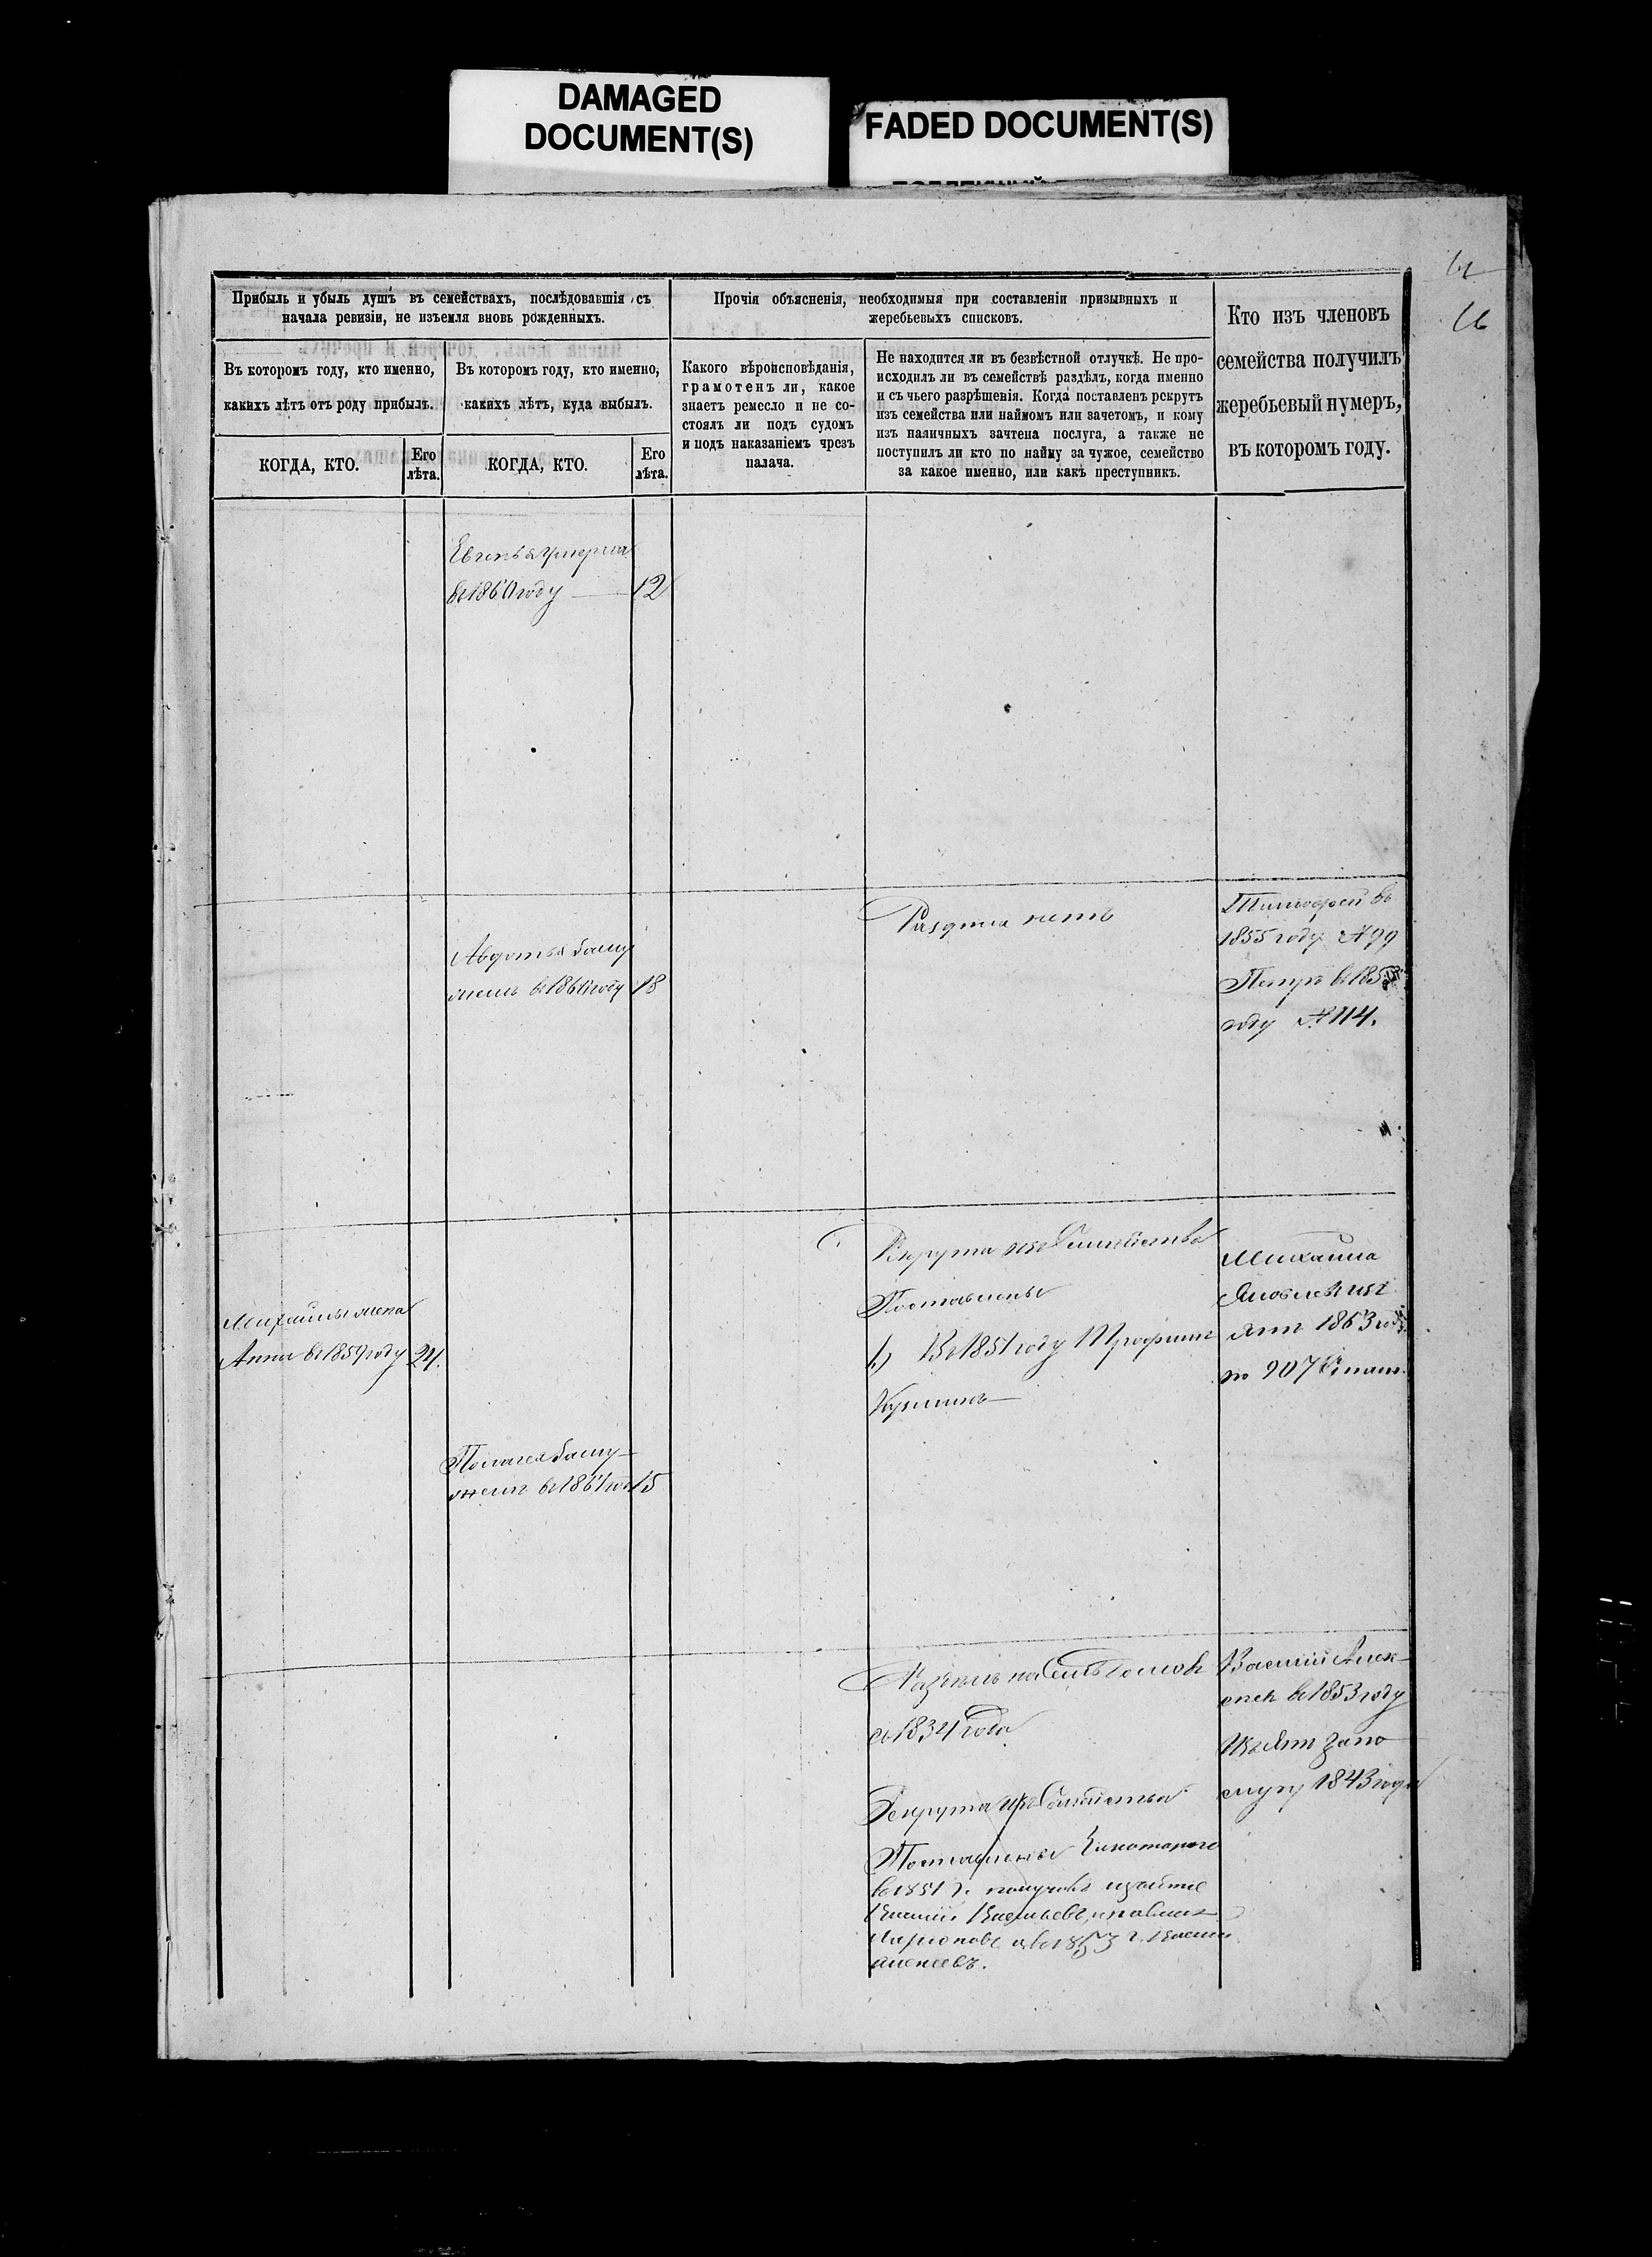 DAMAGED
DOCUMENT(S)
FADED DOCUMENT(S)
Прибыль и убыль душъ въ семействахъ, послѣдовавшія съ
начала ревизіи, не изъемля вновь рожденныхъ.
Въ которомъ году, кто именно,
какихъ лѣтъ отъ роду прибылъ.
Въ которомъ году, кто именно,
какихъ лѣтъ, куда выбылъ.
КОГДА, КТО.
Его
лѣта.
КОГДА, КТО.
Его
лѣта.
Прочія объясненія, необходимыя при составленіи призывныхъ и
жеребьевыхъ списковъ.
Какого вѣроисповѣданія,
грамотенъ ли, какое
знаетъ ремесло и не со-
стоялъ ли подъ судомъ
и подъ наказаніемъ чрезъ
палача.
Не находится ли въ безвѣстной отлучкѣ. Не про-
исходилъ ли въ семействѣ раздѣлъ, когда именно
и съ чьего разрѣшенія. Когда поставленъ рекрутъ
изъ семейства или наймомъ или зачетомъ, и кому
изъ наличныхъ зачтена послуга, а также не
поступилъ ли кто по найму за чужое, семейство
за какое именно, или какъ преступникъ.
Кто изъ членовъ
семейства получилъ
жеребьевый нумеръ,
въ которомъ году.
во 1860 году 12
Раздѣла нетъ
Тимофей въ
1855 году № 99
Петръ въ
году № 114.
Авдотья заму
жемъ въ году 18
Рекрута изъ Семейства
Поставлены
1) Въ 1851 году Трофимъ
Кузминъ
Михайла
Яковлевъ
1863
по 207
Михайлы жена
Анна въ 1859 году 24.
Пелагея заму-
жемъ въ 15
съ 1834 года
Рекрута изъ Семейства
Поставлены
въ 1851 г.
Василій Васильевъ,
въ 1853 г. Василій
Алексеевъ.
Василій Алек-
сеевъ въ 1853 году
запо
слугу 1843 года